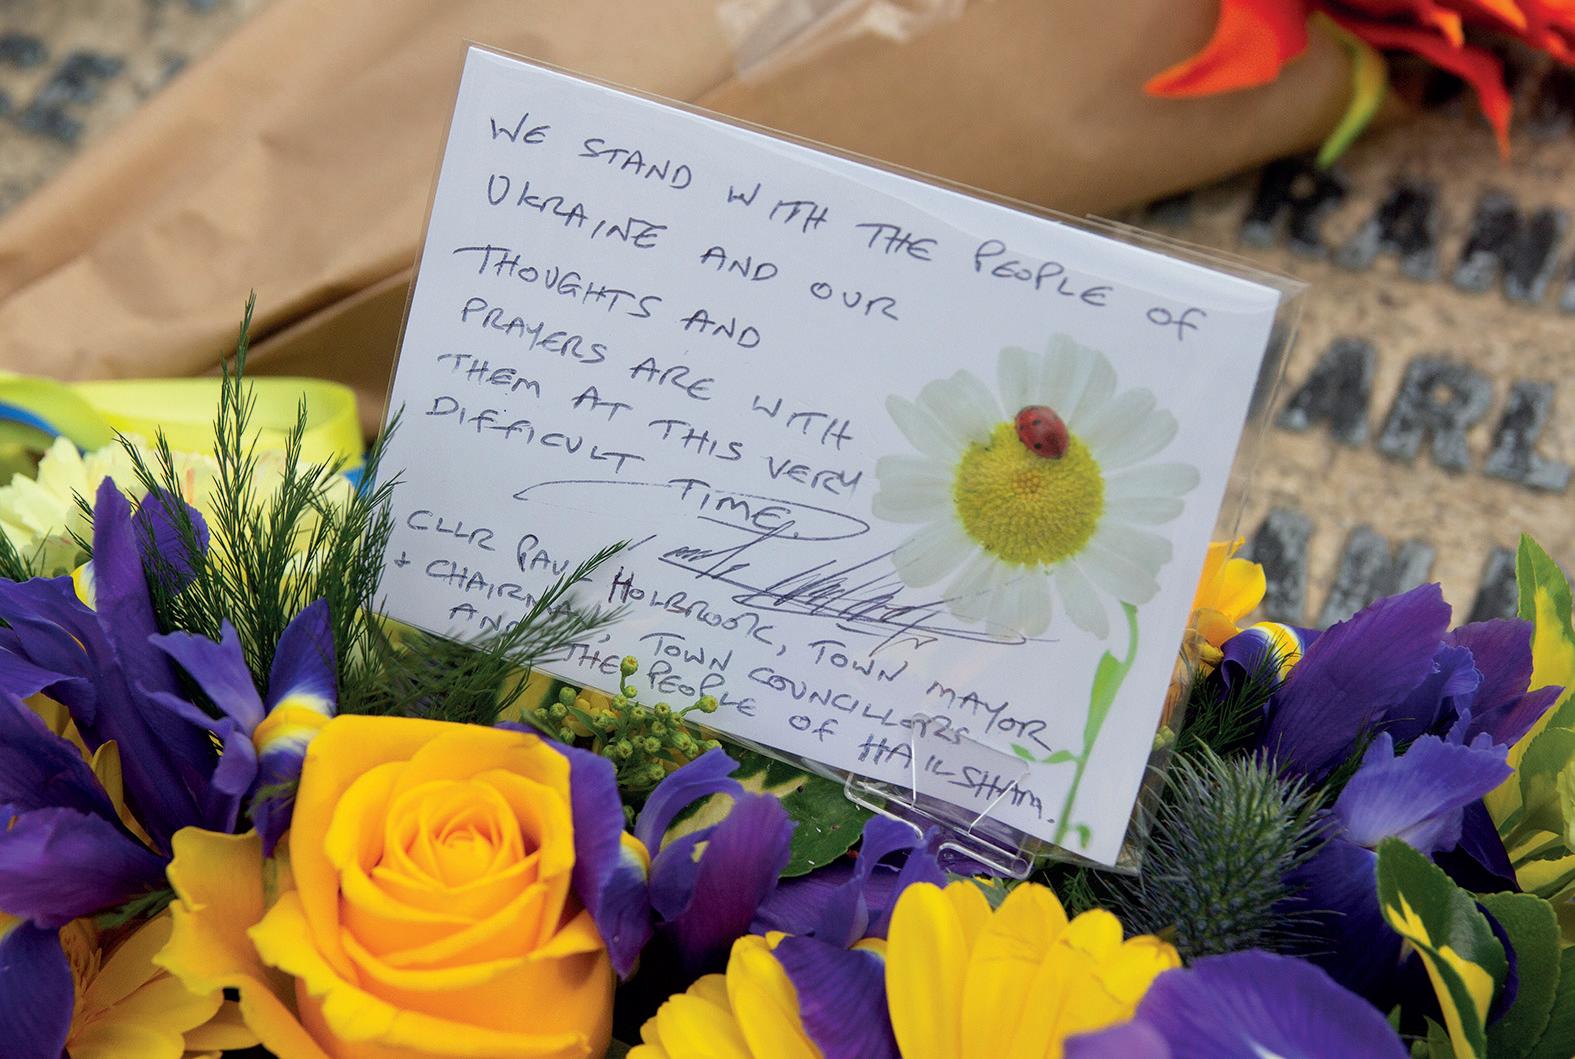 WE STAND WITH THE PEOPLE OF
UKRAINE AND OUR
THOUGHTS AND
PRAYERS ARE WITH
THEM AT THIS VERY
DIFFICULT TIME.
CLLR PAUL HOLBROOK, TOWN MAYOR
+ CHAIRMAN, TOWN COUNCILLORS
AND THE PEOPLE OF HAILSHAM.